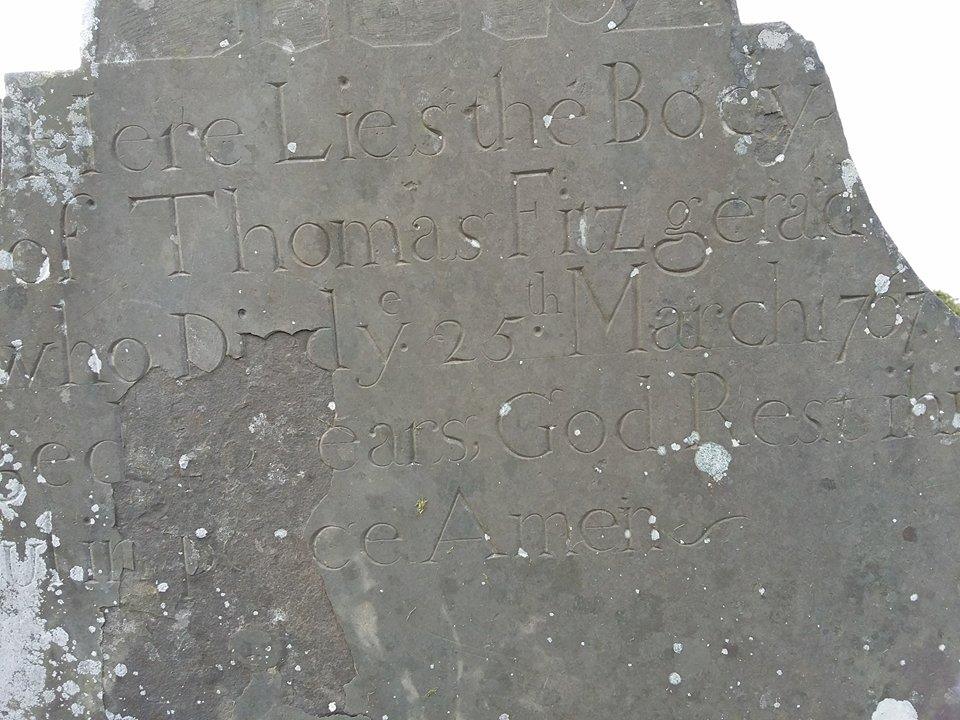 Here Lies the Body
of Thomas Fitzgerald
who Dyed yᵉ 25ᵗʰ March 1707
ears, God Rest
in Amen